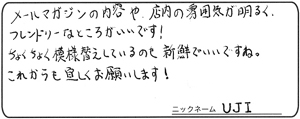 メールマガジンの内容や、店内の雰囲気が明るく、
フレンドリーなところがいいです!
ちょくちょく模様替えしているのも新鮮でいいですね。
これからも宜しくお願いします!
ニックネーム UJI